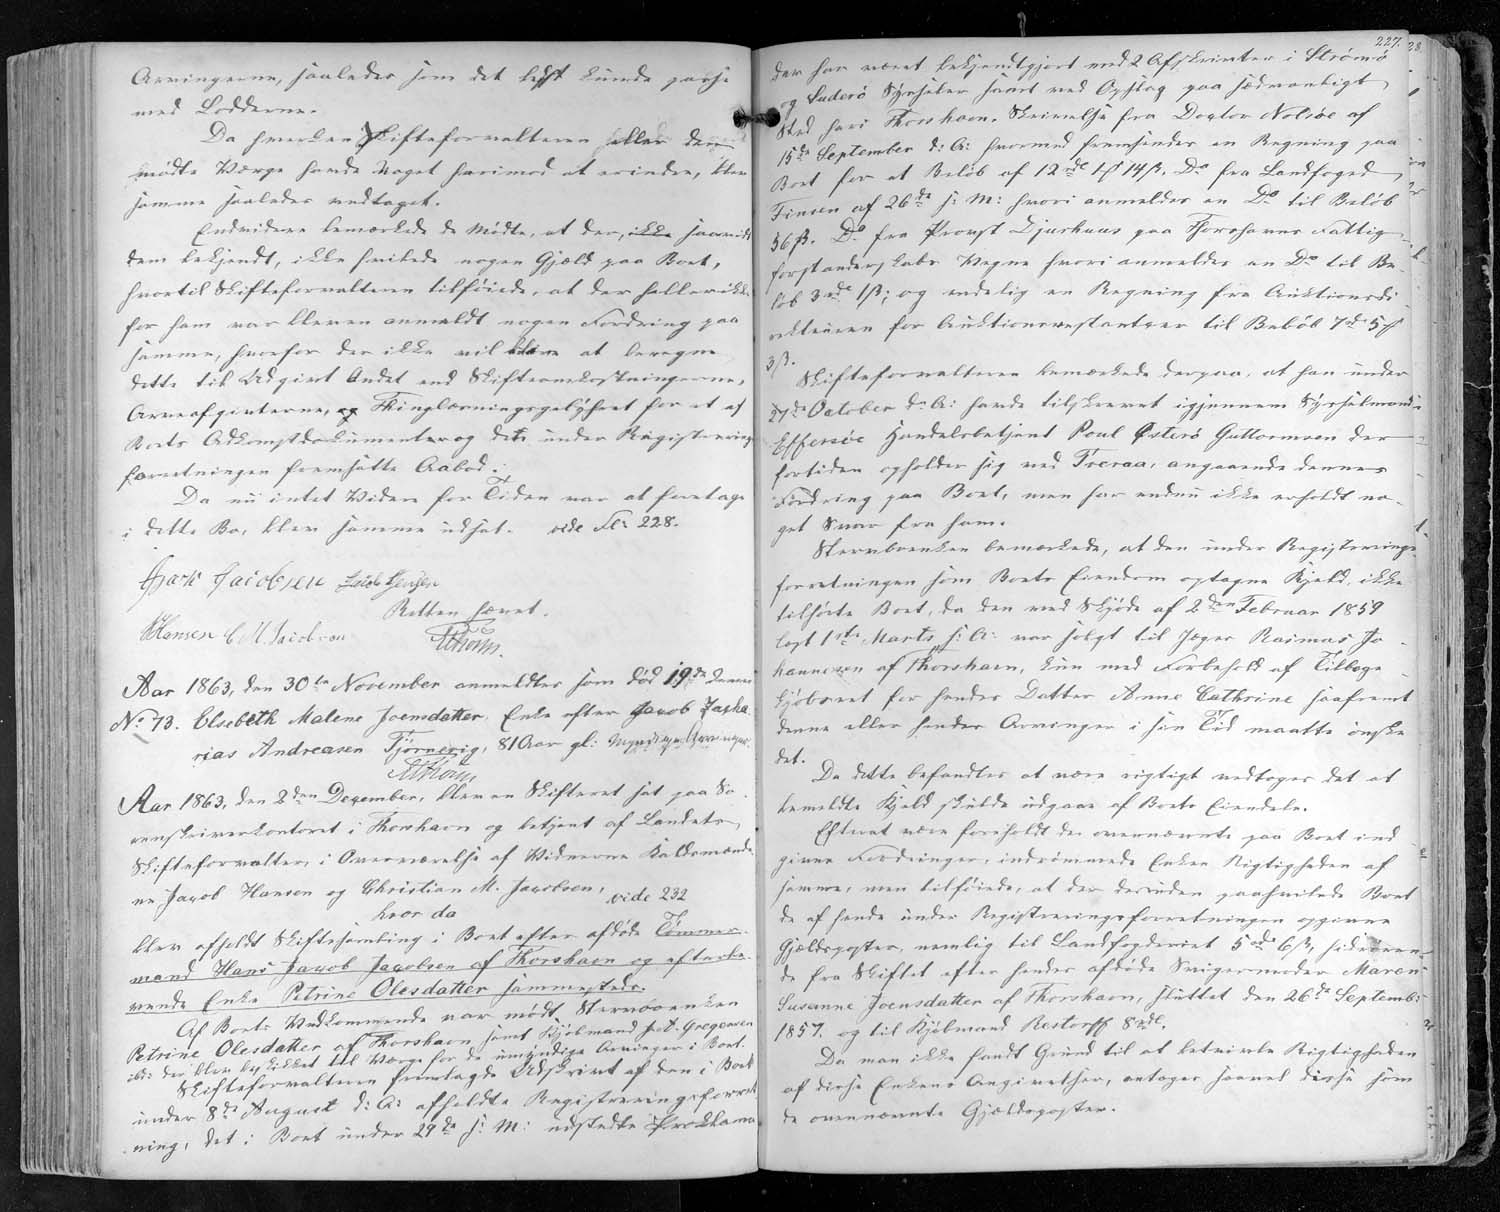 Arvingerne, saaledes som det bedst kunde passe
med Lodderne.
Da hverken Skifteforvalteren eller den
mødte Værge havde Noget herimod at erindre, blev
samme saaledes vedtaget.
Endvidere bemærkede de Mødte, at der, ikke saavidt
dem bekjendt, ikke hvilede nogen Gjæld paa Boet,
hvortil Skifteforvalteren tilføiede, at der heller ikke
for ham var bleven anmeldt nogen Fordring paa
samme, hvorfor der ikke vil blive at beregne
dette til Udgivt Andet end Skifteomkostningerne,
Arveafgivterne, og Thinglæsningsgebyhret for et af
Boets Adkomstdokumenter og det under Registrerings
forretningen fremsatte Aabod.
Da nu intet Videre for Tiden var at foretage
i dette Bo, blev samme udsat. vide Fl: 228.
Jacob Jensen
Retten hævet.
JHansen C M Jacobsen
HThorm.
Aar 1863, den 30te November anmeldtes som død 19de dennes
No 73. Elsebeth Malene Joensdatter, Enke efter Jacob Zacha
rias Andreasen Tjørnevig, 81 Aar gl: Myndige Arvinger.
HThorm
Aar 1863, den 2den December, blev en Skifteret sat paa So
renskriverkontoret i Thorshavn og betjent af Landets
Skifteforvalter, i Overværelse af Vidnerne Kaldsmænde
ne Jacob Hansen og Christian M. Jacobsen,
hvor da vide 232
blev afholdt Skiftesamling i Boet efter afdøde Tømmer
mand Hans Jacob Jacobsen af Thorshavn og efterle
vende Enke Petrine Olesdatter sammesteds.
Af Boets Vedkommende var mødt Sterboenken
Petrine Olesdatter af Thorshavn samt Kjøbmand J. Gregersen
ibd: der blev beskikket til Værge for de umyndige Arvinger i Boet.
Skifteforvalteren fremlagde Udskrivt af den i Boet
under 8de August d: A: afholdte Registreringsforret
ning, det i Boet under 29de s: M: udstedte Proklama
227.
der har været bekjendtgjort ved 2 Afskrivter i Strømø
og Suderø Sysseler samt ved Opslag paa sædvanligt
Sted heri Thorshavn. Skrivelse fra Doctor Nolsøe af
15de September d: A: hvormed fremsendes en Regning paa
Boet for et Beløb af 12rdl 1# 14ß. Do fra Landfoged
Finsen af 26de s: M: hvori anmeldes en Do til Beløb
56ß. Do fra Provst Djurhuus paa Thorshavns Fattig
forstanderskabs Vegne hvori anmeldes en Do til Be
løb 3rdl 1ß; og endelig en Regning fra Auktionsdi
rekteuren for Auktionsrestantser til Beløb 7rdl 5#
3ß.
Skifteforvalteren bemærkede derpaa, at han under
27de October d: A: havde tilskrevet igjennem Sysselmand
Effersøe Handelsbetjent Poul Østerø Guttormsen der
fortiden opholder sig ved Tveraa, angaaende dennes
Fordring paa Boet, men har endnu ikke erholdt no
get Svar fra ham.
Sterboenken bemærkede, at den under Registrerings
forretningen som Boets Eiendom optagne Kjeld, ikke
tilhørte Boet, da den ved Skjøde af 2den Februar 1859
læst 1ste Marts s: A: var solgt til Jæger Rasmus Jo
hannesen af Thorshavn, kun med Forbehold af Tilbage
kjøbsret for hendes Datter Anne Cathrine saafremt
denne eller hendes Arvinger i sin Tid maatte ønske
det.
Da dette befandtes at være rigtigt vedtoges det at
bemeldte Kjeld skulde udgaae af Boets Eiendele.
Efterat være foreholdt de ovennævnte paa Boet ind
givne Fordringer, indrømmede Enken Rigtigheden af
samme, men tilføiede, at der desuden paahvilede Boet
de af hende under Registreringsforretningen opgivne
Gjældsposter, nemlig til Landfogderiet 5rdl 6ß, hidrøren
de fra Skiftet efter hendes afdøde Svigermoder Maren
Susanne Joensdatter af Thorshavn, sluttet den 26de Septemb:
1857, og til Kjøbmand Restorff 8rdl.
Da man ikke fandt Grund til at betvivle Rigtigheden
af disse Enkens Angivelser, antoges saavel disse som
de ovennævnte Gjældsposter.